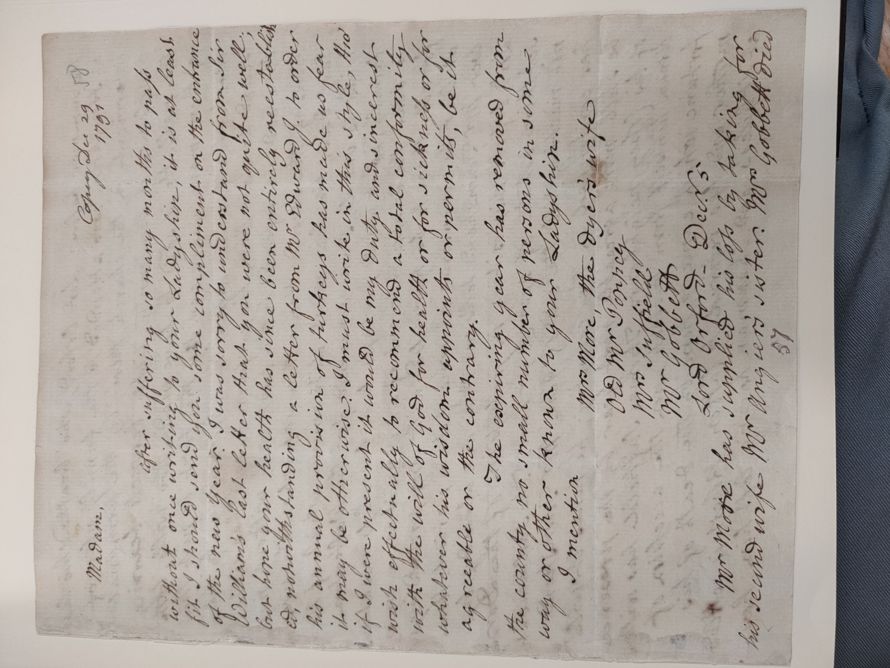 Copy Dec 29 58
1791.
Madam,
After suffering so many months to pass
without once writing to your Ladyship, it is at least
fit I should send you some compliment on the entrance
of the new Year. I was sorry to understand from Sir
William's last letter that you were not quite well;
but hope your health has since been entirely reestablish
ed, notwithstanding a letter from Mr Edward J. to order
his annual provision of turkeys has made us fear
it may be otherwise. I must write in this style, tho'
if I were present it would be my duty and sincerest
wish effectually to recommend a total conformity
with the will of God for health or for sickness or for
whatever his wisdom appoints or permits, be it
agreeable or the contrary.
The expiring year has removed from
the county no small number of persons in some
way or other known to your Ladyship.
I mention Mrs More, the dyers wife
Old Mr Poppey
Mrs Suffield
Mr Gobbett
Lord Orford - Decr. 5
Mr More has supplied his loss by taking for
his second wife Mr Angiers sister. Mrs Gobbett died
57